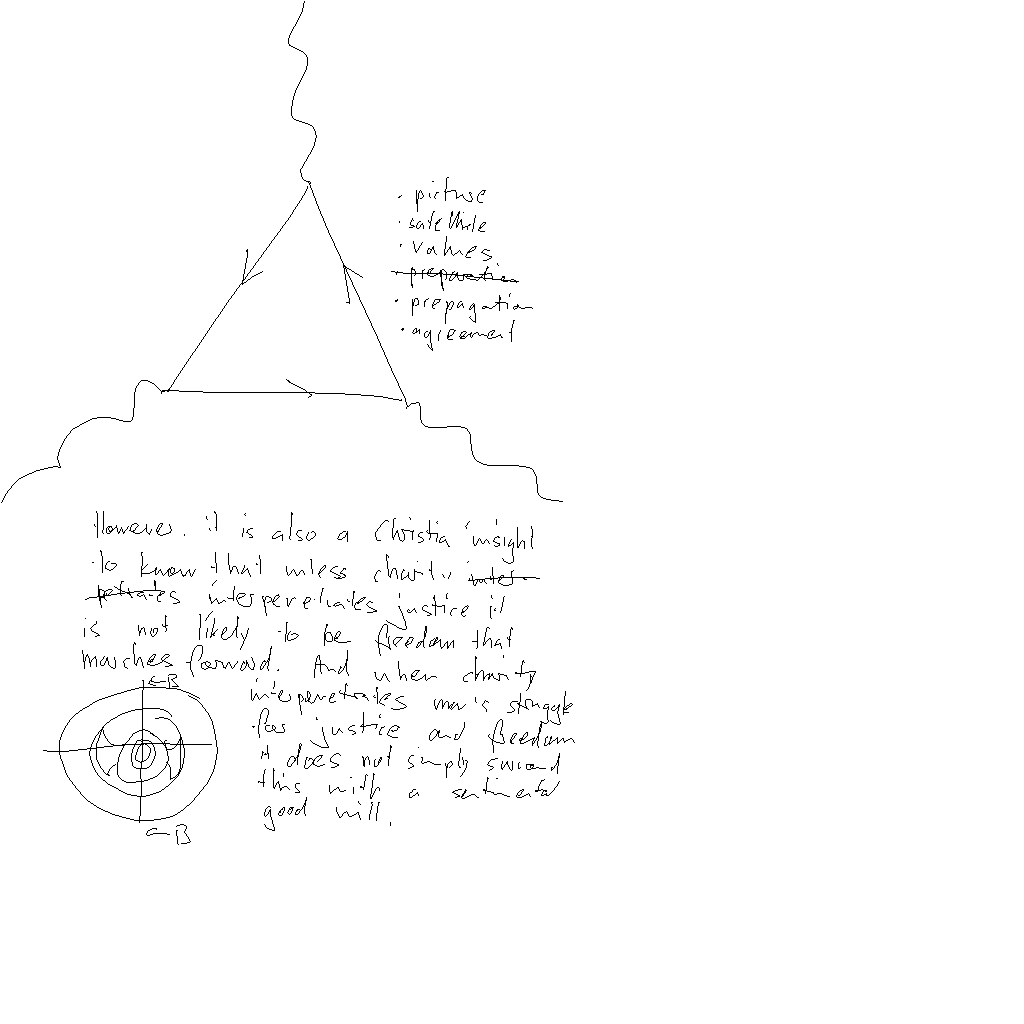 · picture
· satellite
· values
· preparation
· propagation
· agreement
However. it is also a Christia insight
to know that unless charity inter-
petrates interpenetrates justice it
is not likely to be freedom that
marches forward. And when charity
interpenetrates man's struggle
for justice and freedom
it does not simply surround
this with a sentimental
good will.
B
B